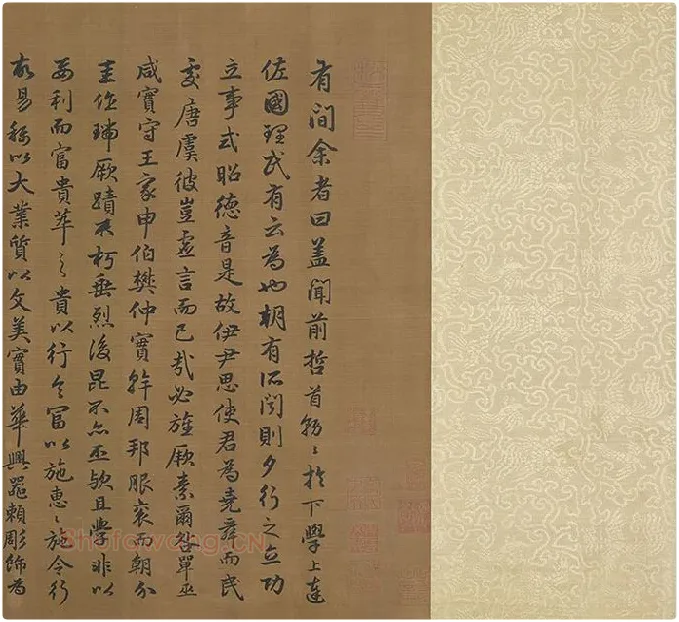 有間余者曰盖聞前哲首務〻於下學上達
佐國理民有云為也朝有所聞則夕行之立功
立事式昭德音是故伊尹思使君為堯舜而民
處唐虞彼豈虛言而已哉必旌厥素爾咎單巫
咸實守王家申伯樊仲實幹周邦服衮而朝介
圭作瑞厥蹟不朽垂烈後昆不亦丕歟且學非以
要利而富貴萃之貴以行令富以施惠〻施令行
故易稱以大業質以文美實由華興器賴彫飾為
Shufawang.CN